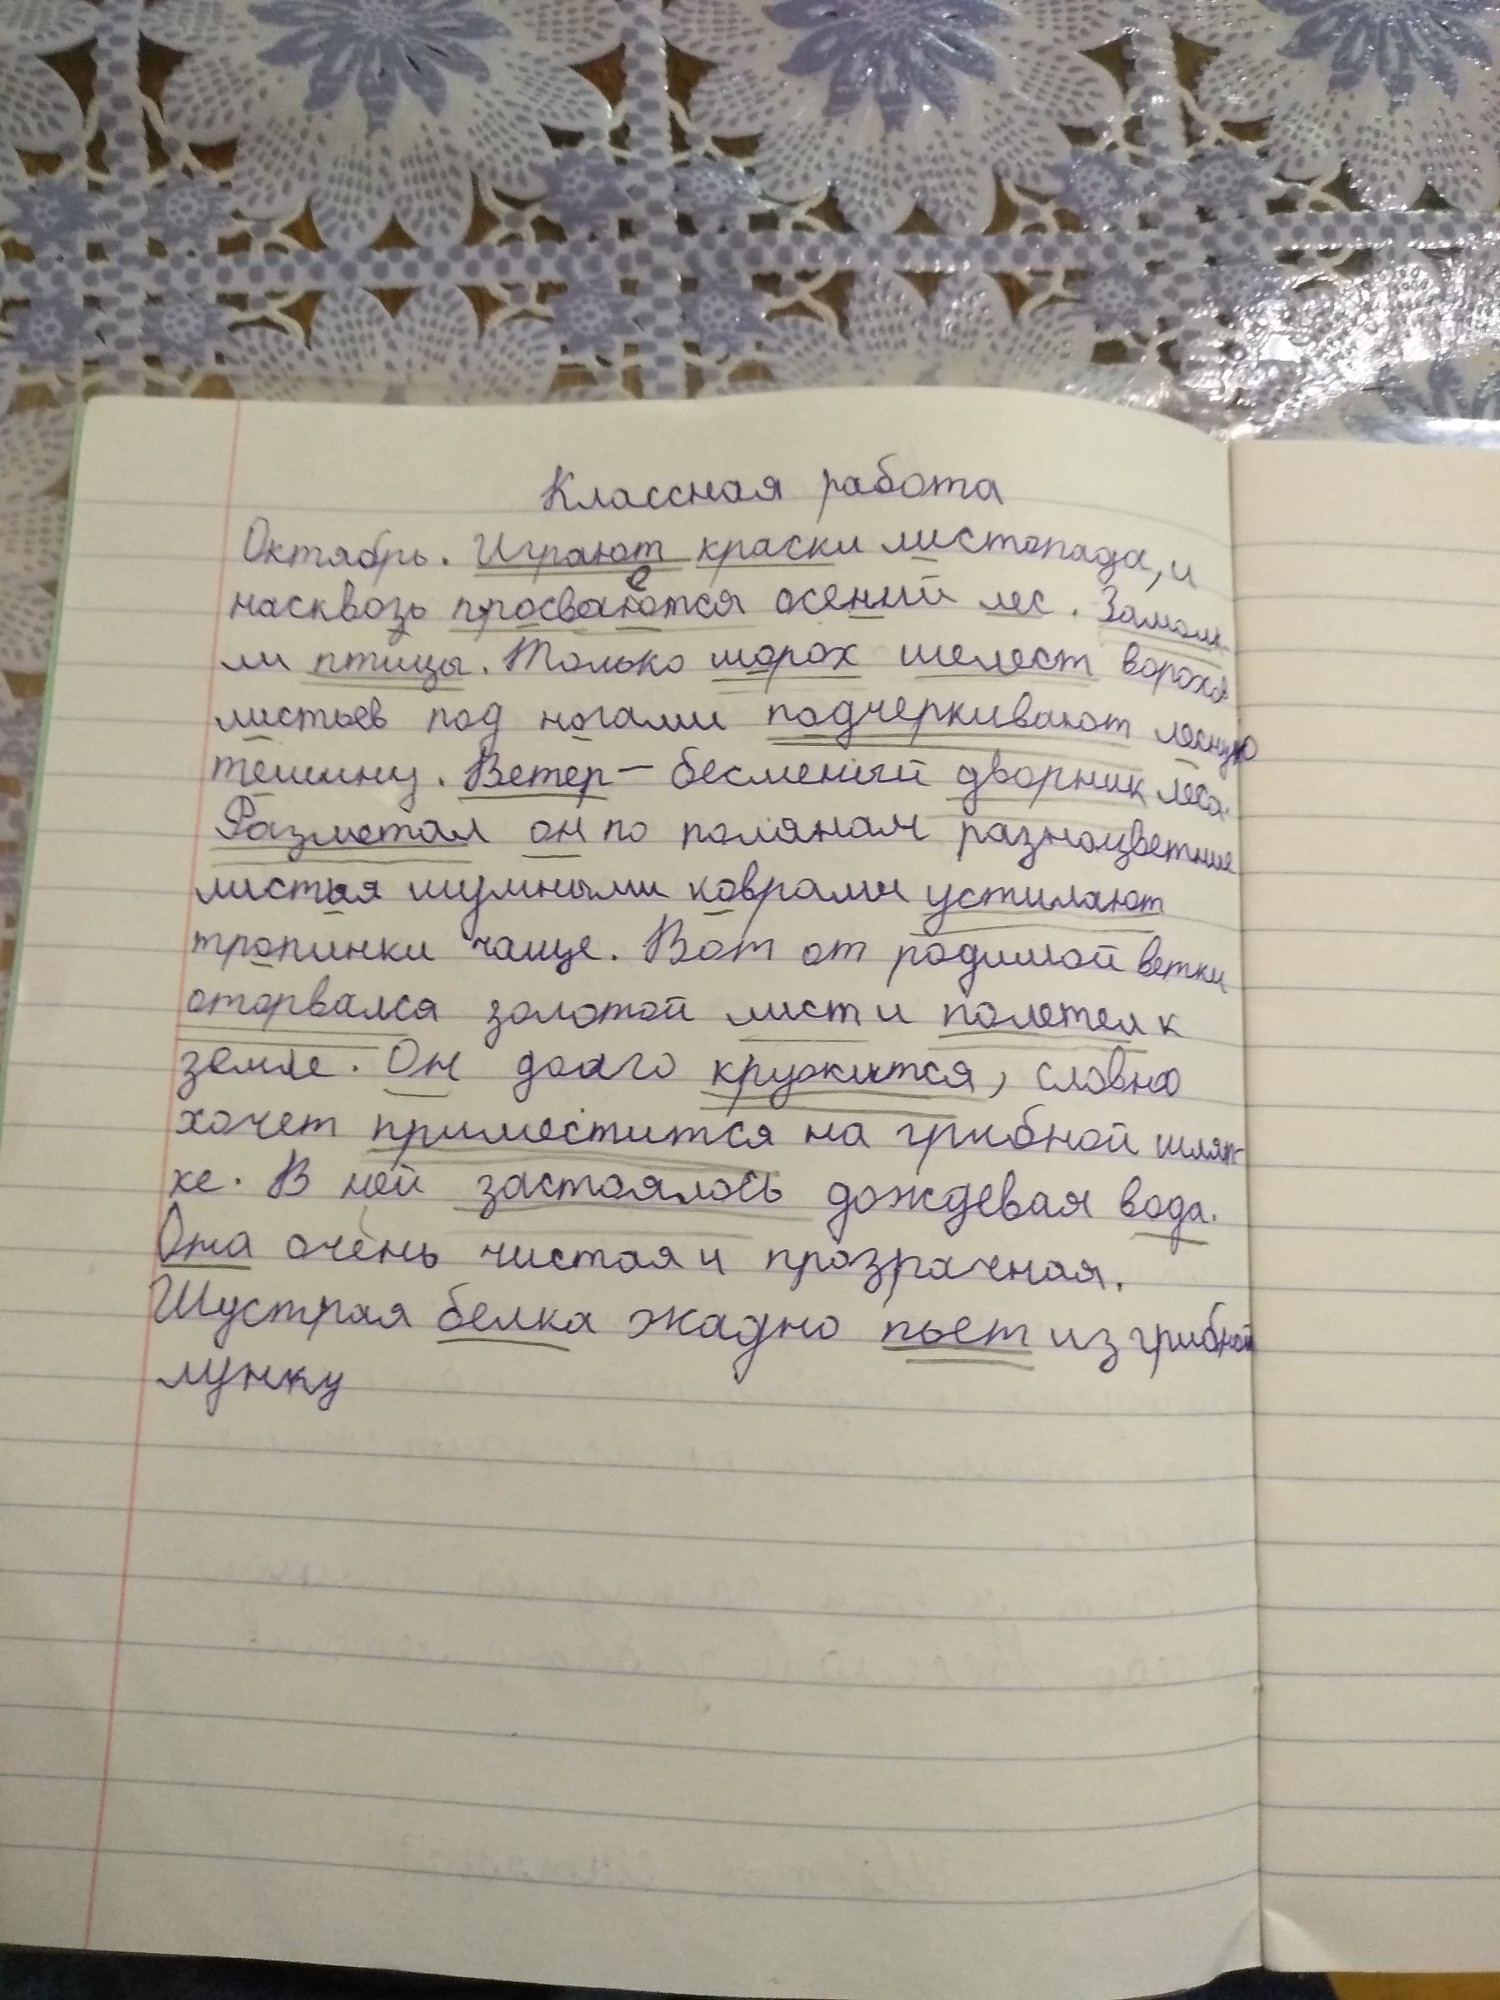 Классная работа
Октябрь. Играют краски листопада, и
насквозь просваетося осений лес. Замолк-
ли птицы. Только шорох шелест вороха
листьев под ногами подчеркивают лесную
тешину. Ветер – бесмений дворник леса.
Разметал он по полянам разноцветные
листья шумными коврами устилают
тропинки чаще. Вот от родимой ветки
оторвался золотой лист и полетел к
земле. Он долго кружится, словно
хочет приместится на грибной шляп-
ке. В ней застоялось дождевая вода.
Она очень чистая и прозрачная.
Шустрая белка жадно пьет из грибной
лунку